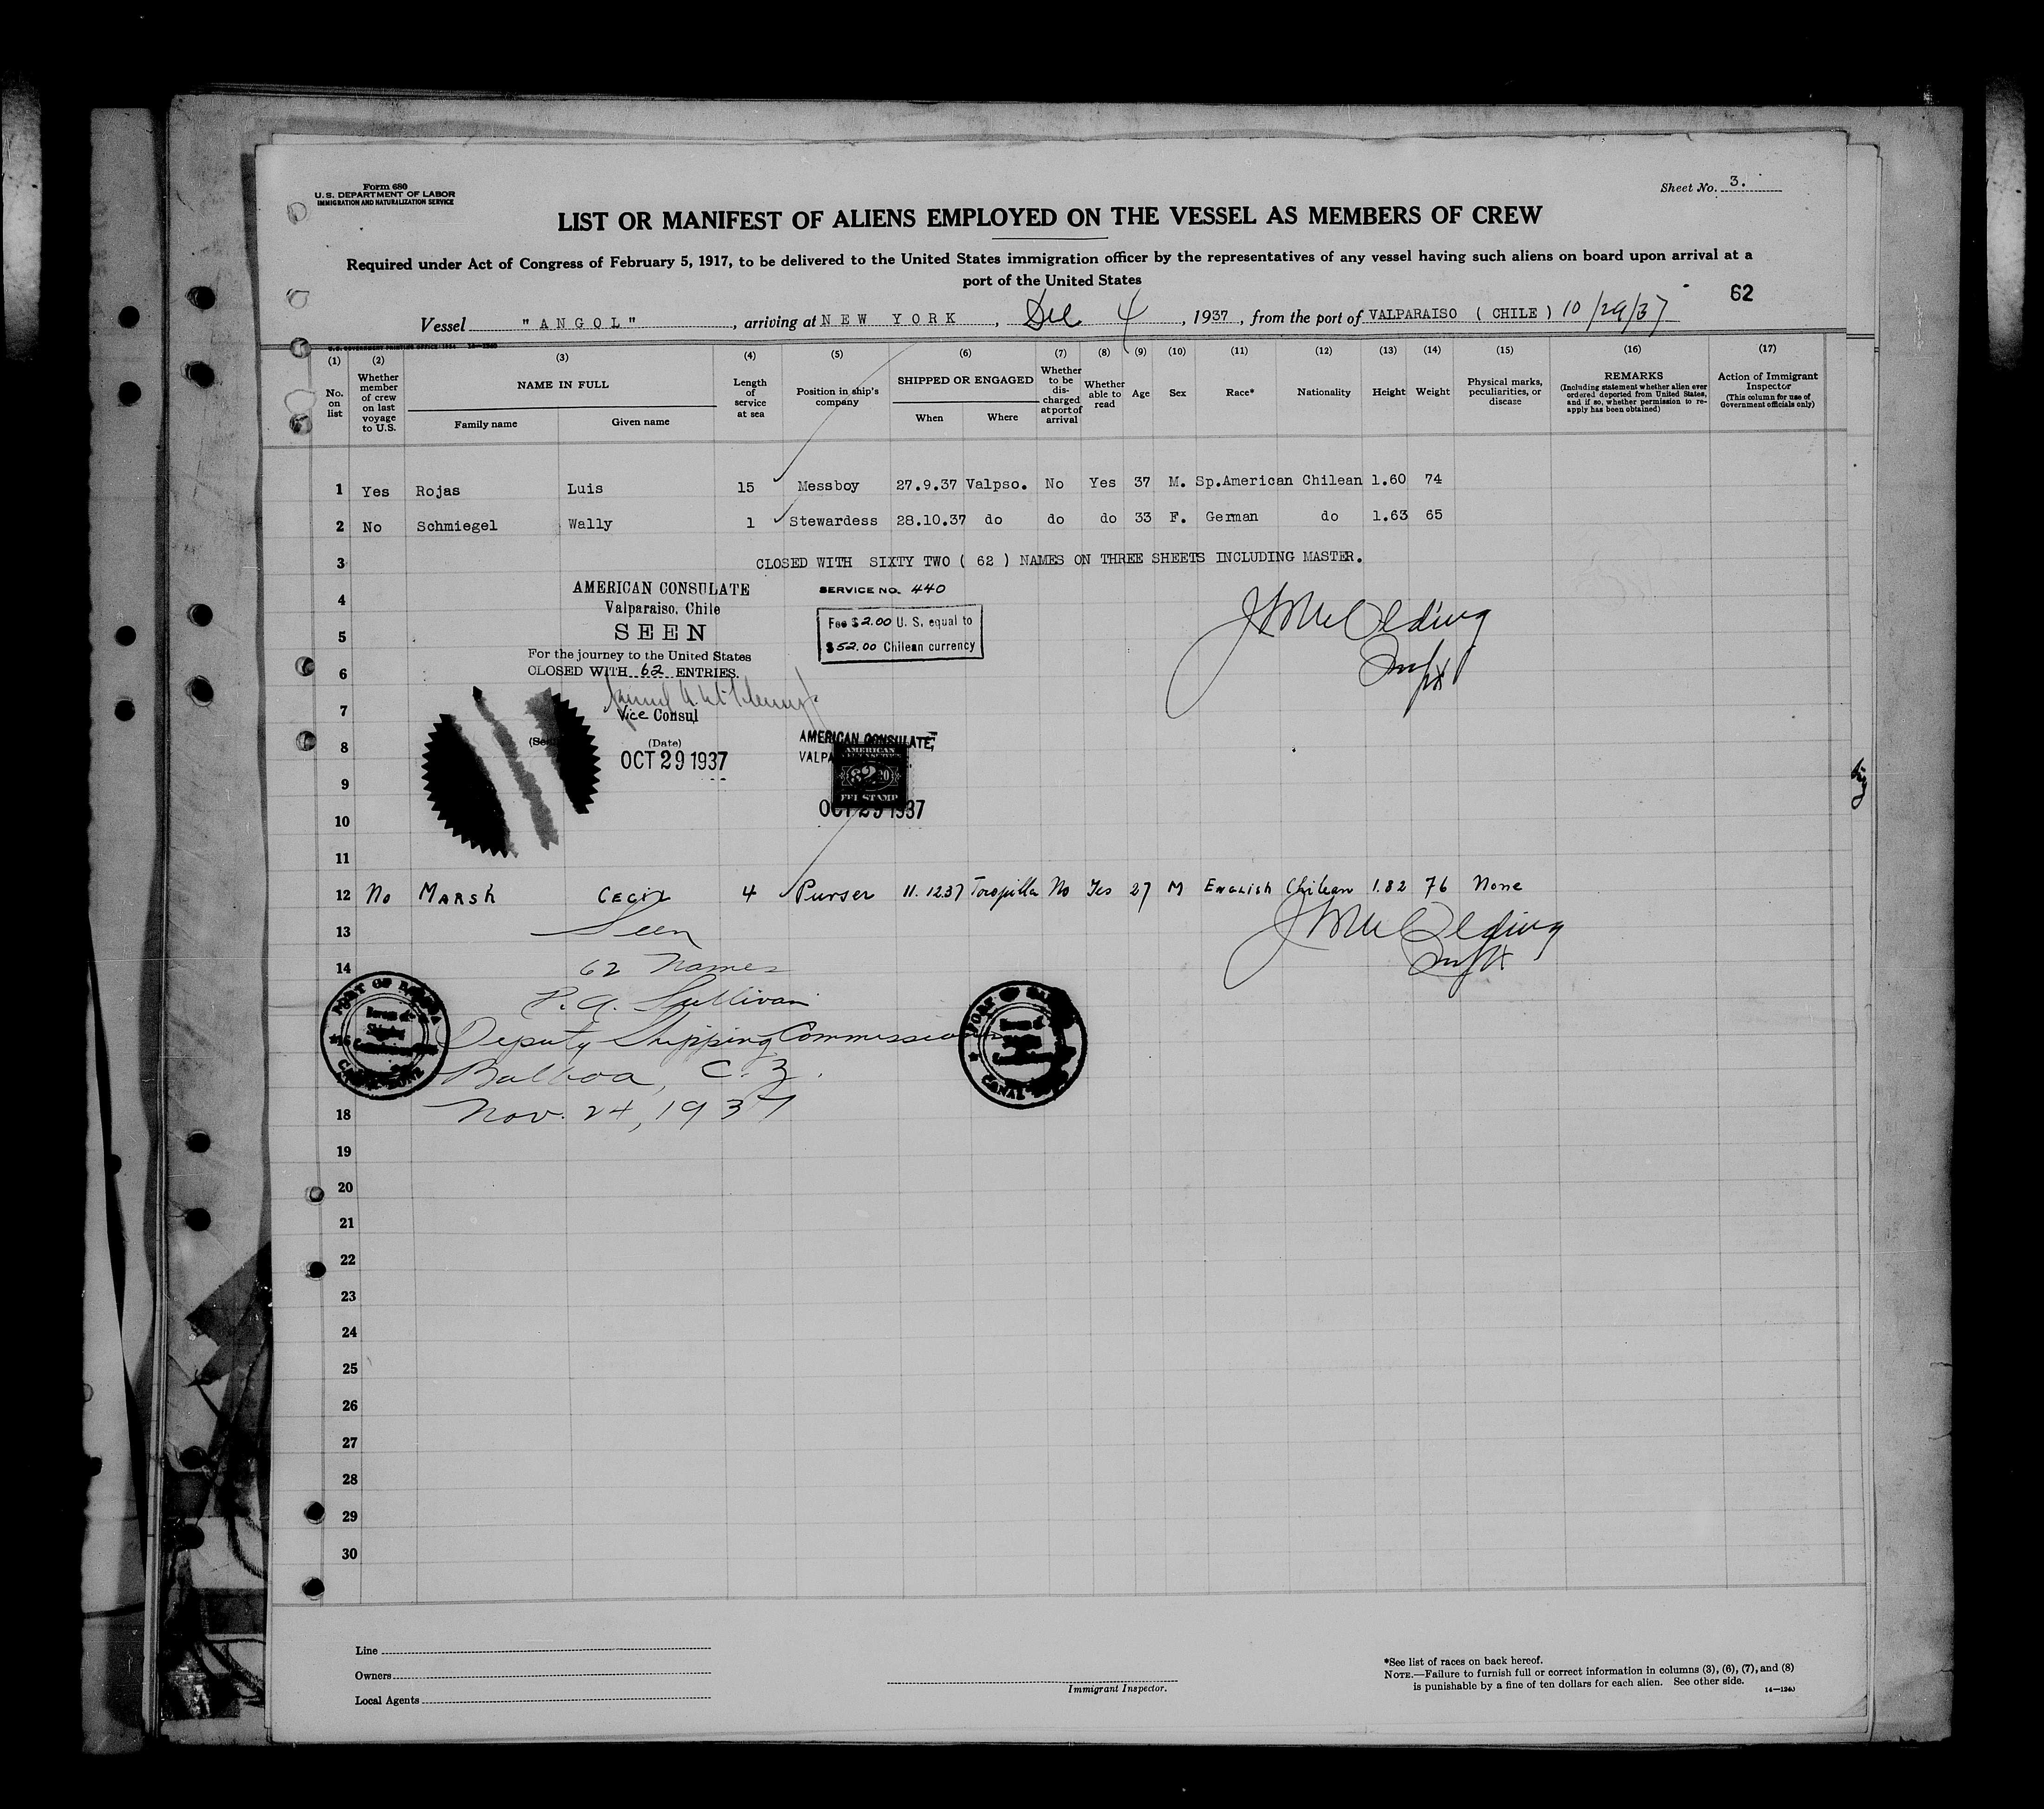 Form 680
U. S. DEPARTMENT OF LABOR
IMMIGRATION AND NATURALIZATION SERVICE
Sheet No. 3.
LIST OR MANIFEST OF ALIENS EMPLOYED ON THE VESSEL AS MEMBERS OF CREW
Required under Act of Congress of February 5, 1917, to be delivered to the United States immigration officer by the representatives of any vessel having such aliens on board upon arrival at a
port of the United States
62
Vessel "ANGOL", arriving at NEW YORK, Dec 4, 1937, from the port of VALPARAISO ( CHILE ) 10/29/37
(1) (2) (3) (4) (5) (6) (7) (8) (9) (10) (11) (12) (13) (14) (15) (16) (17)
No. on list
Whether member of crew on last voyage to U.S.
NAME IN FULL
Family name
Given name
Length of service at sea
Position in ship's company
SHIPPED OR ENGAGED
When
Where
Whether to be discharged at port of arrival
Whether able to read
Age
Sex
Race*
Nationality
Height
Weight
Physical marks, peculiarities, or disease
REMARKS
(Including statement whether alien ever ordered deported from United States, and if so, whether permission to reapply has been obtained)
Action of Immigrant Inspector
(This column for use of Government officials only)
1 Yes Rojas Luis 15 Messboy 27.9.37 Valpso. No Yes 37 M. Sp.American Chilean 1.60 74
2 No Schmiegel Wally 1 Stewardess 28.10.37 do do do 33 F. German do 1.63 65
3 CLOSED WITH SIXTY TWO ( 62 ) NAMES ON THREE SHEETS INCLUDING MASTER.
4
5
6
7
8
9
10
11
AMERICAN CONSULATE
Valparaiso, Chile
SEEN
For the journey to the United States
CLOSED WITH 62 ENTRIES.
Vice Consul
(Date)
OCT 29 1937
SERVICE NO. 440
Fee $2.00 U. S. equal to
$52.00 Chilean currency
AMERICAN CONSULATE,
AMERICAN
FEE STAMP
OCT 29 1937
12 No MARSH CECIL 4 Purser 11.1237 Tocopilla No Yes 27 M ENGLISH Chilean 1.82 76 None
13 Seen
14 62 Names
P. A. Sullivan
Deputy Shipping Commissioner
Balboa, C. Z.
18 Nov. 24, 1937
PORT OF BALBOA
CANAL ZONE
PORT OF
CANAL
19
20
21
22
23
24
25
26
27
28
29
30
Line
Owners
Local Agents
Immigrant Inspector.
*See list of races on back hereof.
NOTE.—Failure to furnish full or correct information in columns (3), (6), (7), and (8)
is punishable by a fine of ten dollars for each alien. See other side.